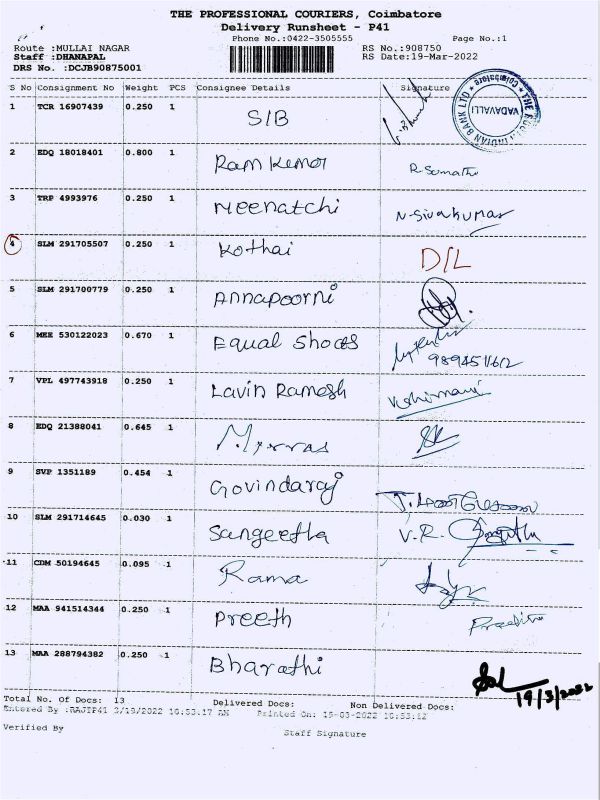 THE PROFESSIONAL COURIERS, Coimbatore
Delivery Runsheet - P41
Phone No.:0422-3505555 Page No.:1
Route :MULLAI NAGAR RS No.:908750
Staff :DHANAPAL RS Date:19-Mar-2022
DRS No. :DCJB90875001
S No Consignment No Weight PCS Consignee Details Signature
1 TCR 16907439 0.250 1 SIB
INDIAN BANK LTD VADAVALLI Coimbatore
2 EDQ 18018401 0.800 1 Ram Kumar R. Sumathi
3 TRP 4993976 0.250 1 Meenatchi N. Sivakumar
4 SLM 291705507 0.250 1 Kothai D/L
5 SLM 291700779 0.250 1 Annapoorni
6 MEE 530122023 0.670 1 Equal Shoes
7 VPL 497743918 0.250 1 Lavin Ramesh
8 EDQ 21388041 0.645 1
9 SVP 1351189 0.454 1 Govindaraj
10 SLM 291714645 0.030 1 Sangeetha V.R.
11 CDM 50194645 0.095 1 Rama
12 MAA 941514344 0.250 1 Preeth
13 MAA 288794382 0.250 1 Bharathi
19/3/2022
Total No. Of Docs: 13 Delivered Docs: Non Delivered Docs:
Entered By :RAJIP41 3/19/2022 10:53:17 AM Printed On: 19-03-2022 10:53:12
Verified By Staff Signature